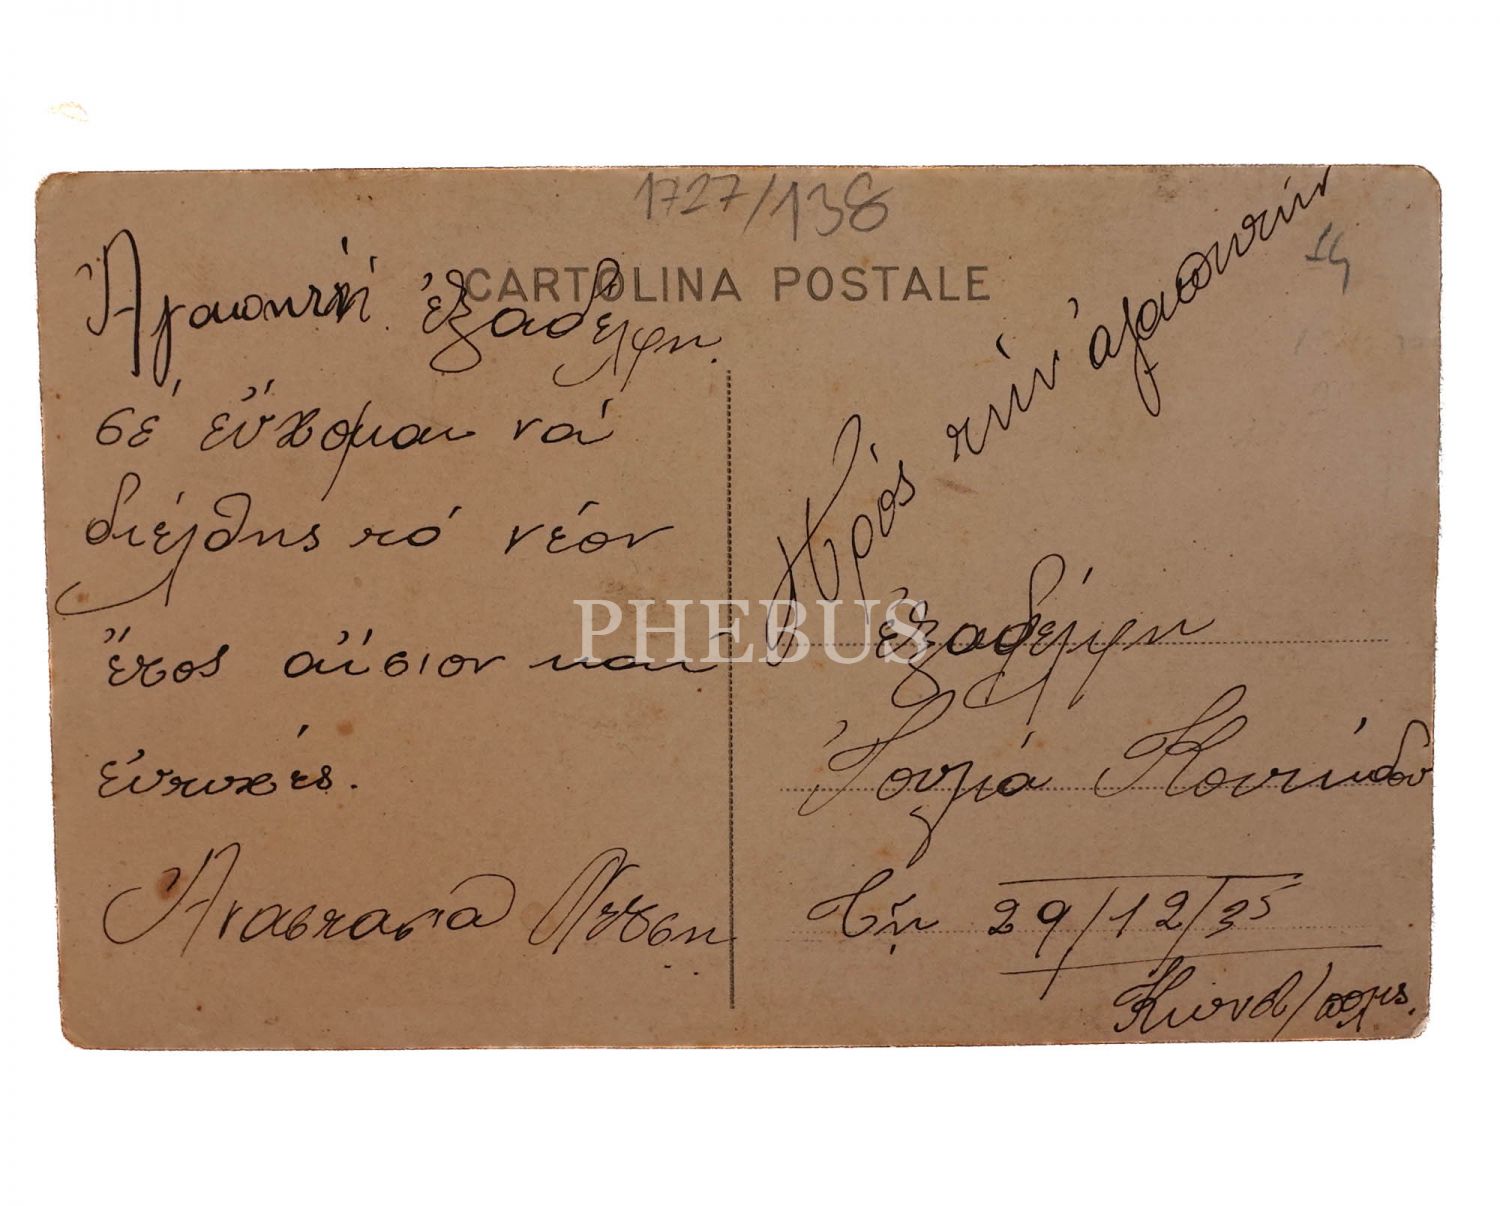 1727/138
CARTOLINA POSTALE
Ἀγαπητή ἐξαδέλφη.
σέ εὔχομαι νά
διέλθης τό νέον
ἔτος αἴσιον καί
εὐτυχές.
Ἀναστασία
Πρός τήν ἀγαπητήν
ἐξαδέλφη
Ἰουλία
Τῇ 29/12/35
Κωνσ/πολις.
PHEBUS